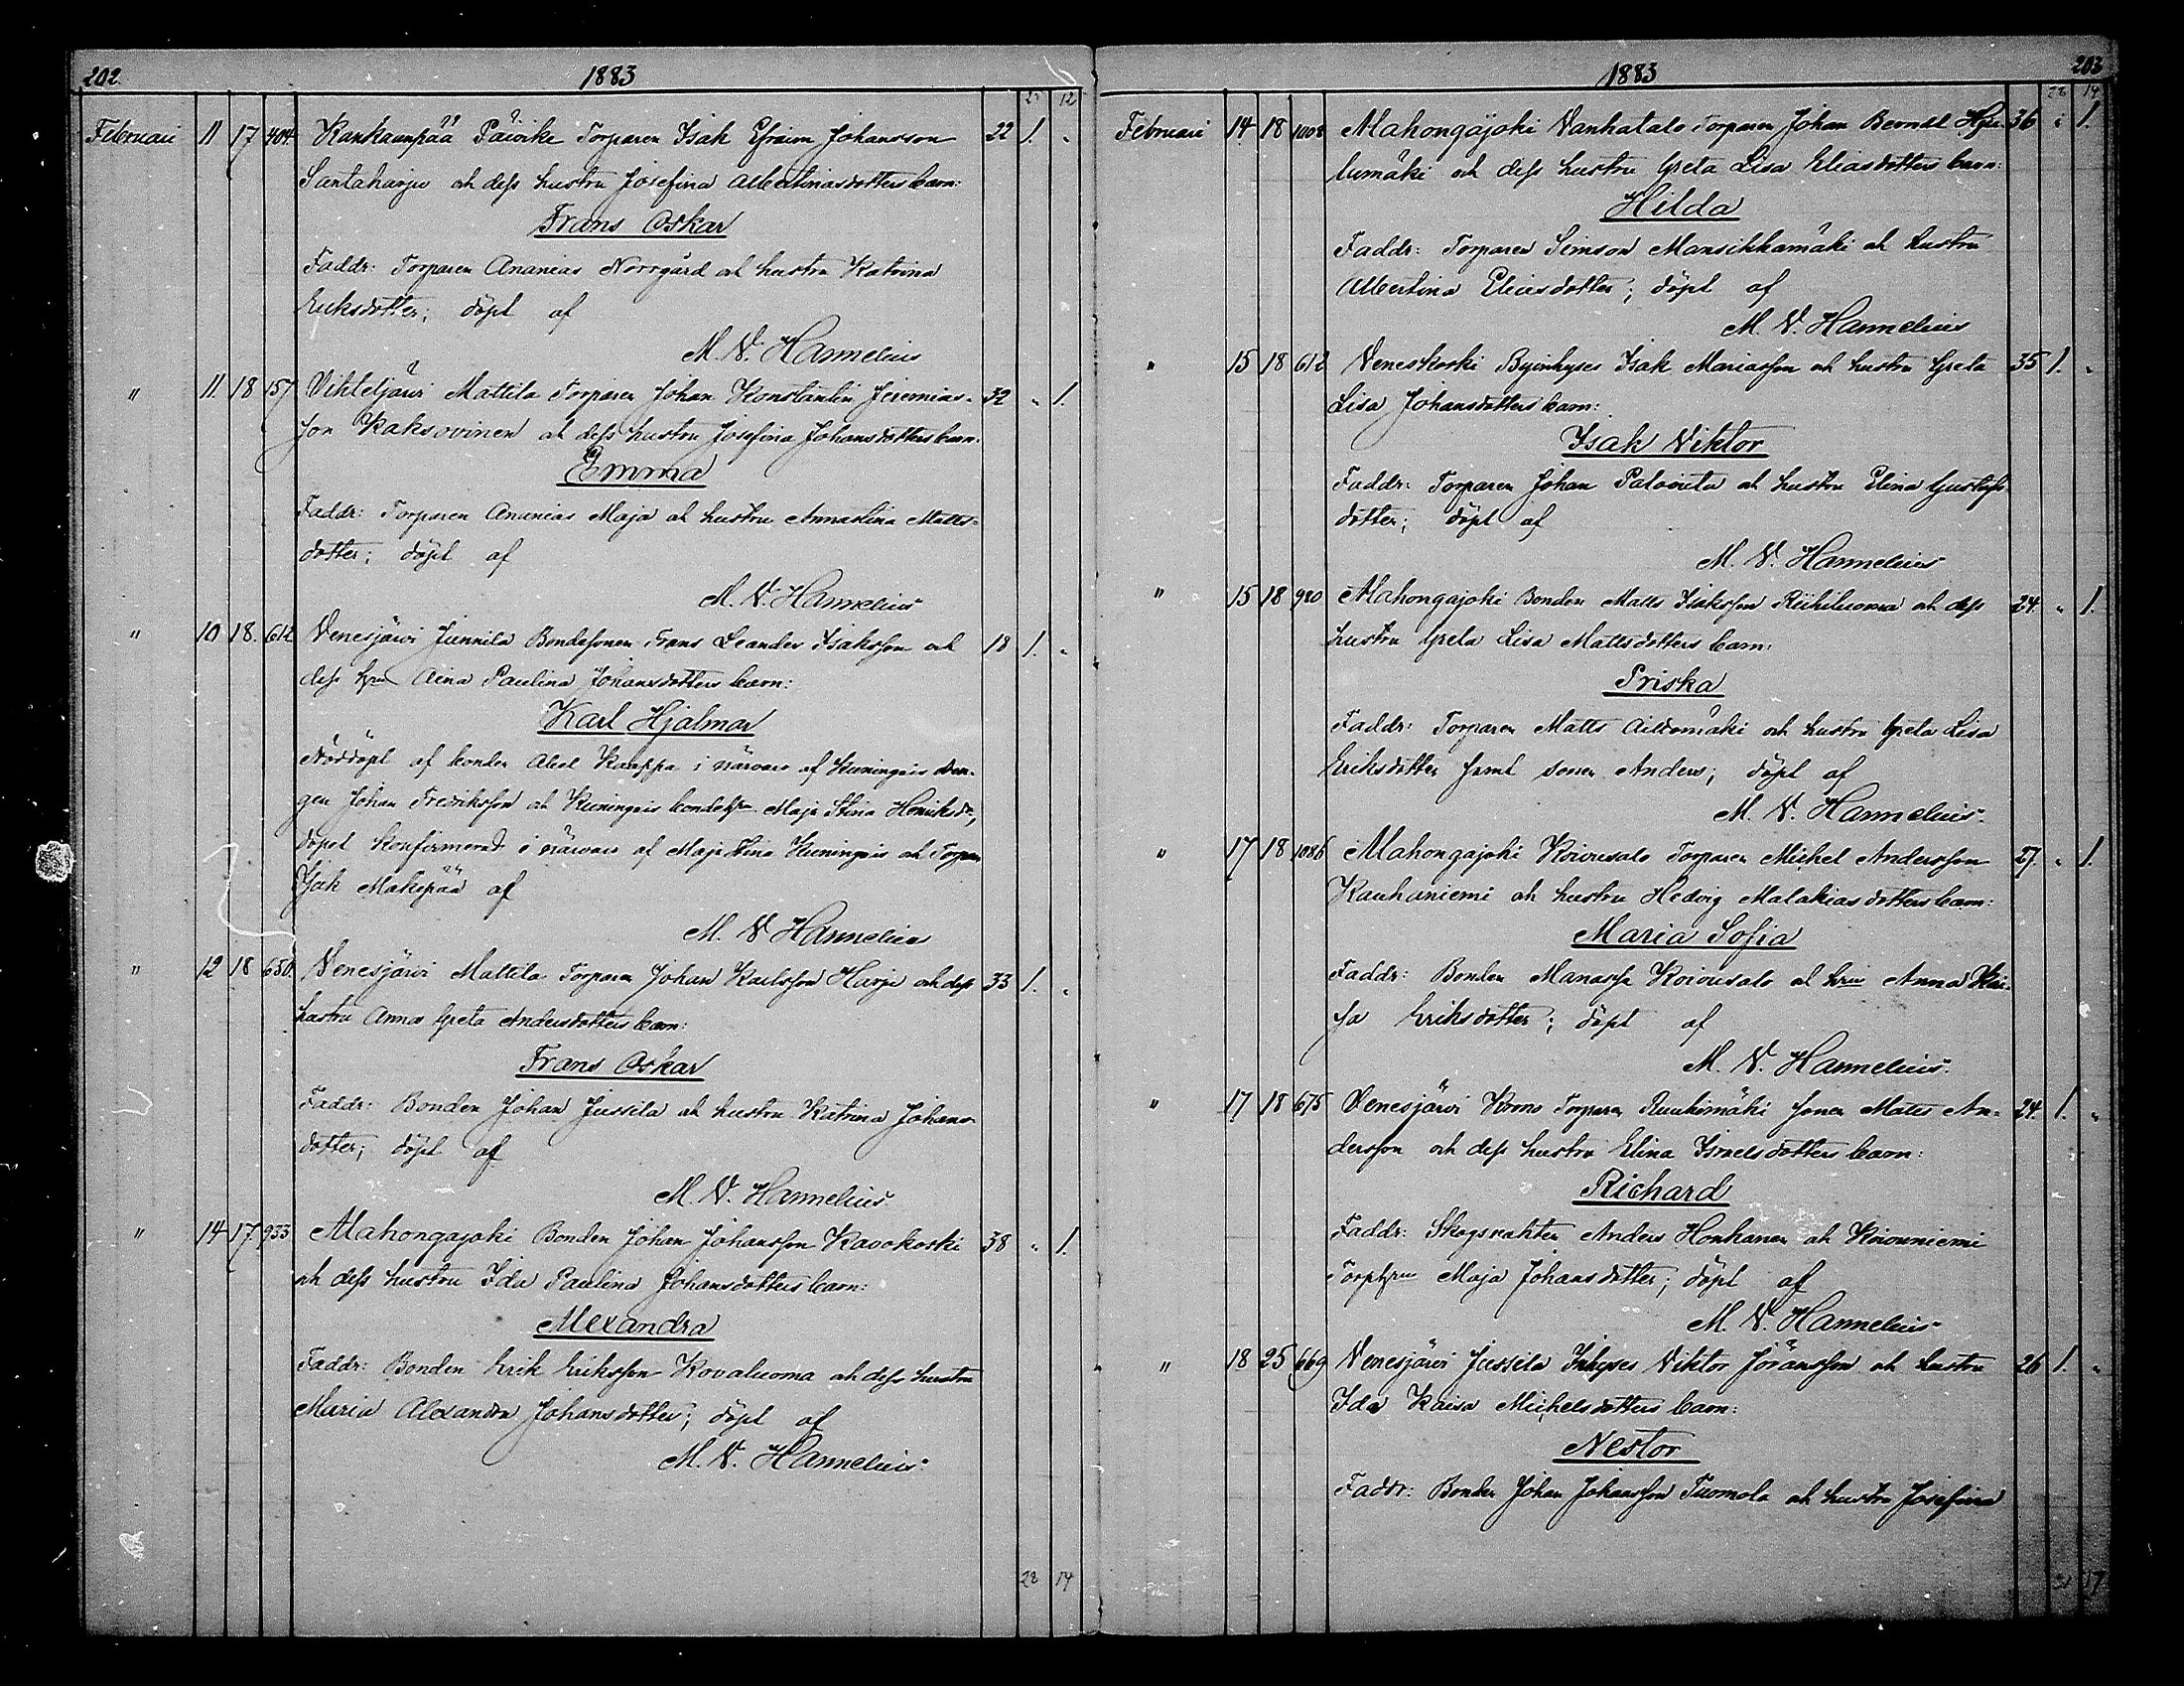 202.
1883
25 12
Februari 11 17 404. Kankaanpää Päivike Torparen Isak Efraim Johansson 22 1. "
Santaharju och dess hustru Josefina Albertinasdotters barn:
Frans Oskar
Faddr: Torparen Ananias Norrgård och hustru Katrina
Eriksdotter; döpt af
M. V. Hannelius
" 11. 18 157 Vihteljärvi Mattila Torparen Johan Konstantin Jeremias- 32 " 1.
son Kaksovinen och dess hustru Josefina Johansdotters barn:
Emma
Faddr: Torparen Ananias Maja och hustru Annastina Matts-
dotter; döpt af
M. V. Hannelius
" 10 18. 612 Venesjärvi Junnila Bondesonen Frans Leander Isaksson och 18 1. "
dess hru Aina Paulina Johansdotters barn:
Karl Hjalmar
Nöddöpt af bonden Abel Kauppa i närvaro af Kuningais dren-
gen Johan Fredriksson och Kuningais bondehru Maja Stina Henriksdr,
döpet konfirmerad i närvaro af Maja Stina Kuningais och Torparen
Isak Makepää af
M. V. Hannelius
" 12 18 650. Venesjärvi Mattila Torparen Johan Karlsson Harju och dess 33 1. "
hustru Anna Greta Andersdotters barn:
Frans Oskar
Faddr: Bonden Johan Jussila och hustru Katrina Johans-
dotter; döpt af
M. V. Hannelius
" 14 17. 933 Mahongajoki Bonden Johan Johansson Kavokoski 38 " 1.
och dess hustru Ida Paulina Johansdotters barn:
Alexandra
Faddr: Bonden Erik Eriksson Kovaluoma och dess hustru
Maria Alexandra Johansdotter; döpt af
M. V. Hannelius.
28 14
1883
203
28 14
Februari 14 18 1008 Mahongajoki Vanhatalo Torparen Johan Berndt Hyr- 36 " 1.
lumäki och dess hustru Greta Lisa Eliasdotters barn:
Hilda
Faddr: Torparen Simson Mansikkamäki och hustru
Albertina Eliasdotter; döpt af
M. V. Hannelius
" 15 18 612 Veneskoski Byinhyses Isak Mariasson och hustru Greta 35 1. "
Lisa Johansdotters barn:
Isak Viktor
Faddr: Torparen Johan Palovita och hustru Elina Gustafs-
dotter; döpt af
M. V. Hannelius
" 15 18 980 Mahongajoki Bonden Matts Isaksson Riihiluoma och dess 24. " 1.
hustru Greta Lisa Mattsdotters barn:
Priska
Faddr: Torparen Matts Aittomäki och hustru Greta Lisa
Eriksdotter samt sonen Anders; döpt af
M. V. Hannelius.
" 17 18 1086 Mahongajoki Koivusalo Torparen Michel Andersson 27. " 1.
Kauhaniemi och hustru Hedvig Malakiasdotters barn:
Maria Sofia
Faddr: Bonden Manasse Koivusalo och hru Anna Kai-
sa Eriksdotter; döpt af
M. V. Hannelius.
" 17 18 675 Venesjärvi Krono Torparen Ruuhimäki sonen Matts An- 24. 1. "
dersson och dess hustru Elina Israelsdotters barn:
Richard
Faddr: Skogsvakten Anders Honkanen och Koivuniemi
Torphru Maja Johansdotter; döpt af
M. V. Hannelius
" 18 25 669 Venesjärvi Jussila Inhyses Viktor Göransson och hustru 26 1. "
Ida Kaisa Michelsdotters barn:
Nestor
Faddr: Bonden Johan Johansson Tuomola och hustru Josefina
31 17